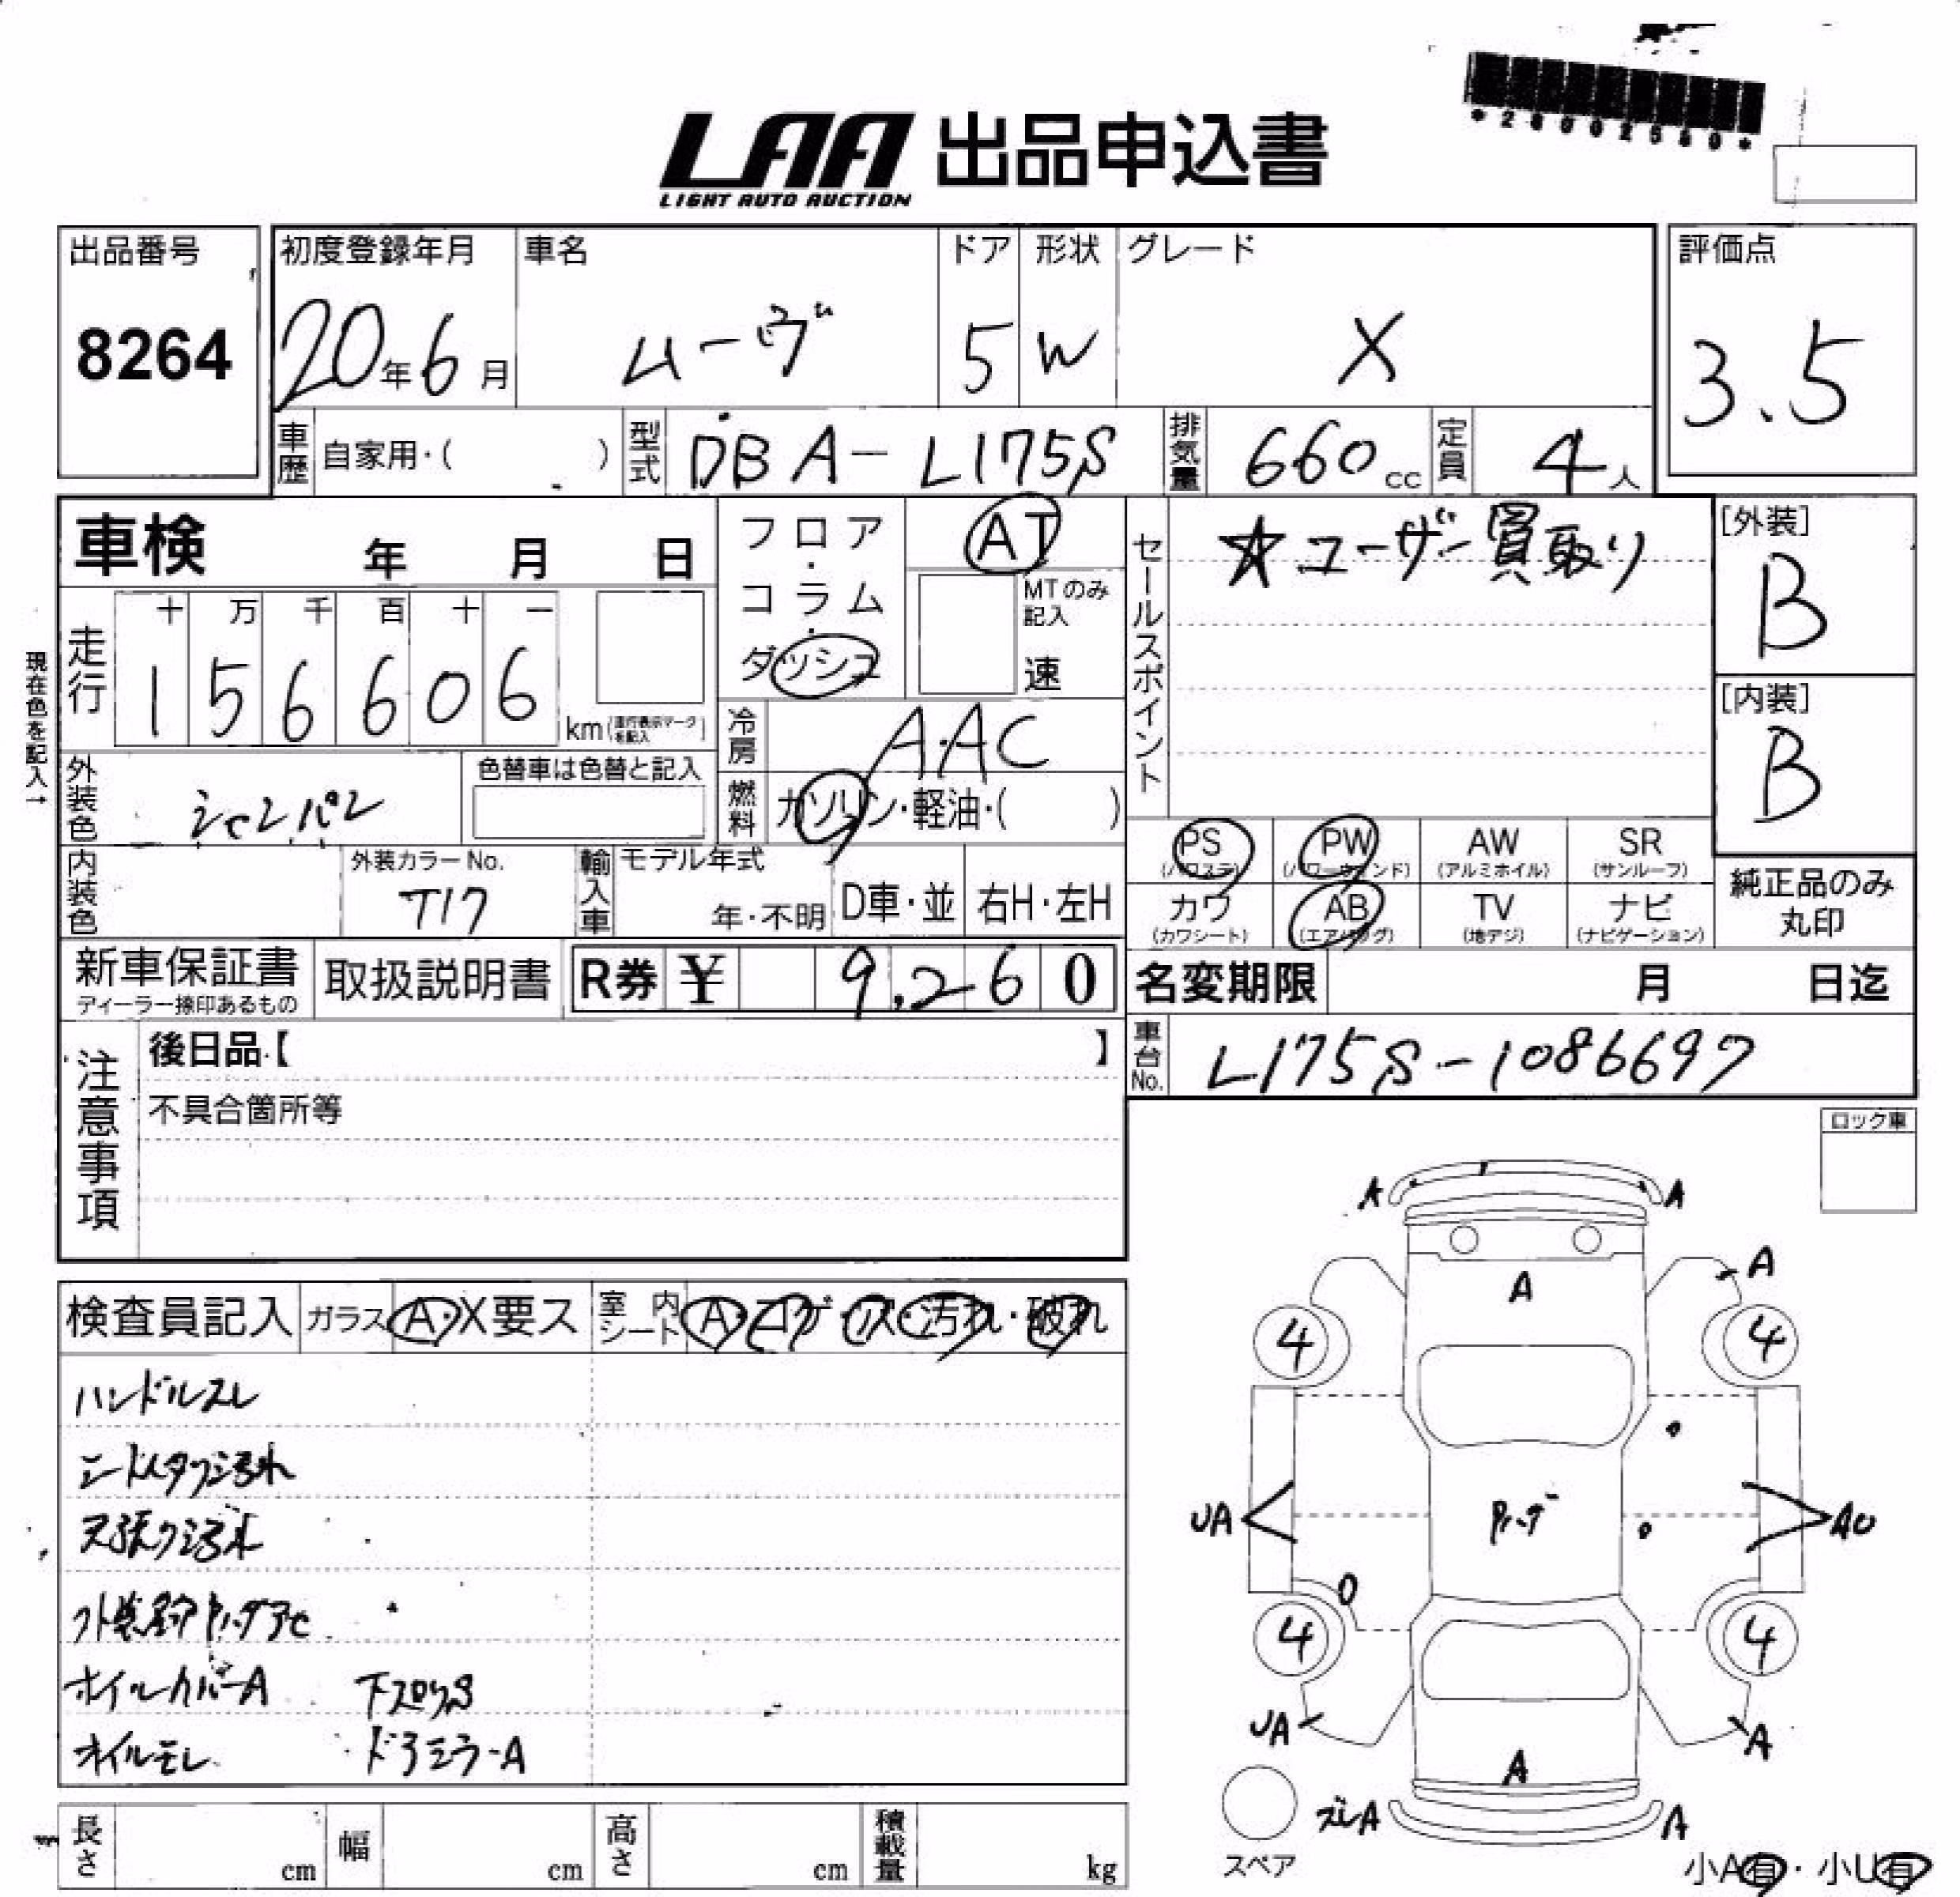 *28002580*
LAA 出品申込書
LIGHT AUTO AUCTION
出品番号 初度登録年月 車名 ドア 形状 グレード 評価点
8264 20年6月 ムーヴ 5 W X 3.5
車歴 自家用・( ) 型式 DBA-L175S 排気量 660cc 定員 4人
車検 年 月 日 フロア・コラム・ダッシュ AT MTのみ記入 速
セールスポイント ☆ユーザー買取り
[外装] B
現在色を記入→
走行 十 万 千 百 十 一
1 5 6 6 0 6 km(走行表示マークを記入)
[内装] B
冷房 A・AC
外装色 シャンパン 色替車は色替と記入
燃料 ガソリン・軽油・( )
PS (パワステ) PW (パワーウィンド) AW (アルミホイル) SR (サンルーフ)
内装色 外装カラーNo. T17 輸入車 モデル年式 年・不明 D車・並 右H・左H
カワ (カワシート) AB (エアバッグ) TV (地デジ) ナビ (ナビゲーション)
純正品のみ丸印
新車保証書 ディーラー捺印あるもの 取扱説明書 R券 ¥ 9,260
名変期限 月 日迄
車台No. L175S-1086697
注意事項 後日品【 】
不具合箇所等
ロック車
検査員記入 ガラス A・X要ス 室内シート A・コゲ・ス・汚れ・破れ
ハンドルスレ
天張り汚れ
ホイールカバーA
オイルモレ ドアミラーA
A A
A A
4 4
UA AU
O
4 4
UA A
A
ズレA A
スペア
小A有・小U有
長さ cm 幅 cm 高さ cm 積載量 kg